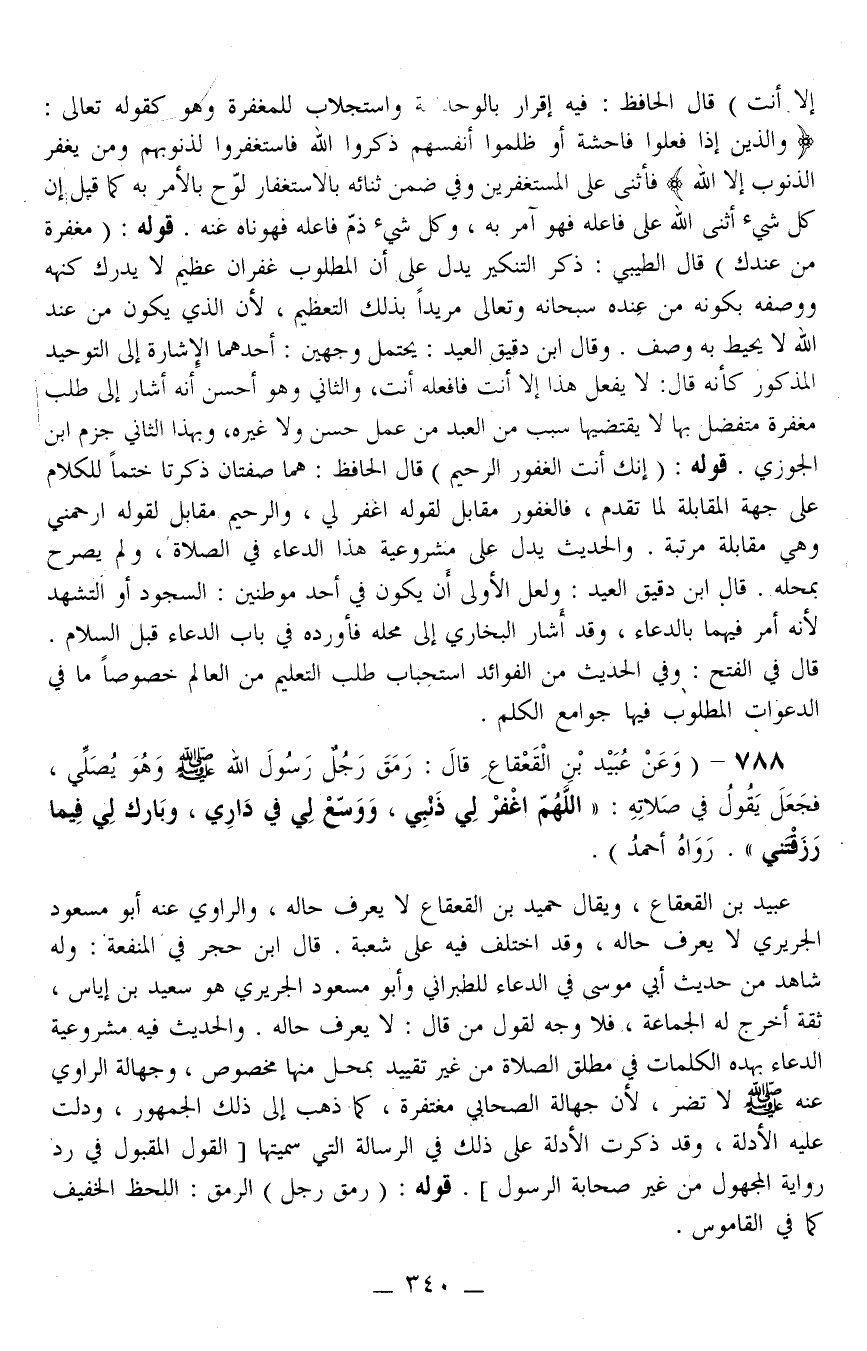 إلا أنت ) قال الحافظ : فيه إقرار واستجلاب للمغفرة وهو كقوله تعالى :
﴿ والذين إذا فعلوا فاحشة أو ظلموا أنفسهم ذكروا الله فاستغفروا لذنوبهم ومن يغفر
الذنوب إلا الله ﴾ فأثنى على المستغفرين وفي ضمن ثنائه بالاستغفار لوّح بالأمر به كما قيل إن
كل شيء أثنى الله على فاعله فهو آمر به ، وكل شيء ذمّ فاعله فهوناه عنه . قوله : ( مغفرة
من عندك ) قال الطيبي : ذكر التنكير يدل على أن المطلوب غفران عظيم لا يدرك كنهه
ووصفه بكونه من عنده سبحانه وتعالى مريداً بذلك التعظيم ، لأن الذي يكون من عند
الله لا يحيط به وصف . وقال ابن دقيق العيد : يحتمل وجهين : أحدهما الإشارة إلى التوحيد
المذكور كأنه قال: لا يفعل هذا إلا أنت فافعله أنت، والثاني وهو أحسن أنه أشار إلى طلب
مغفرة متفضل بها لا يقتضيها سبب من العبد من عمل حسن ولا غيره، وبهذا الثاني جزم ابن
الجوزي . قوله : ( إنك أنت الغفور الرحيم ) قال الحافظ : هما صفتان ذكرتا ختماً للكلام
على جهة المقابلة لما تقدم ، فالغفور مقابل لقوله اغفر لي ، والرحيم مقابل لقوله ارحمني
وهي مقابلة مرتبة . والحديث يدل على مشروعية هذا الدعاء في الصلاة ، ولم يصرح
بمحله . قال ابن دقيق العيد : ولعل الأولى أن يكون في أحد موطنين : السجود أو التشهد
لأنه أمر فيهما بالدعاء ، وقد أشار البخاري إلى محله فأورده في باب الدعاء قبل السلام .
قال في الفتح : وفي الحديث من الفوائد استحباب طلب التعليم من العالم خصوصاً ما في
الدعوات المطلوب فيها جوامع الكلم .
٧٨٨ – ( وَعَنْ عُبَيْد بْنِ الْقَعْقاعِ قالَ : رَمَقَ رَجُلٌ رَسُولَ الله ﷺ وَهُوَ يُصَلِّي ،
فجَعَلَ يَقُولُ في صَلاتِهِ : « اللَّهُمّ اغْفرْ لِي ذَنْبِي ، وَوَسّعْ لِي في دَارِي ، وبَارك لِي فِيما
رَزَقْتَني » . رَوَاهُ أحمدُ ) .
عبيد بن القعقاع ، ويقال حميد بن القعقاع لا يعرف حاله ، والراوي عنه أبو مسعود
الجريري لا يعرف حاله ، وقد اختلف فيه على شعبة . قال ابن حجر في المنفعة : وله
شاهد من حديث أبي موسى في الدعاء للطبراني وأبو مسعود الجريري هو سعيد بن إياس ،
ثقة أخرج له الجماعة ، فلا وجه لقول من قال : لا يعرف حاله . والحديث فيه مشروعية
الدعاء بهذه الكلمات في مطلق الصلاة من غير تقييد بمحل منها مخصوص ، وجهالة الراوي
عنه ﷺ لا تضر ، لأن جهالة الصحابي مغتفرة ، كما ذهب إلى ذلك الجمهور ، ودلت
عليه الأدلة ، وقد ذكرت الأدلة على ذلك في الرسالة التي سميتها [ القول المقبول في رد
رواية المجهول من غير صحابة الرسول ] . قوله : ( رمق رجل ) الرمق : اللحظ الخفيف
كما في القاموس .
— ٣٤٠ —